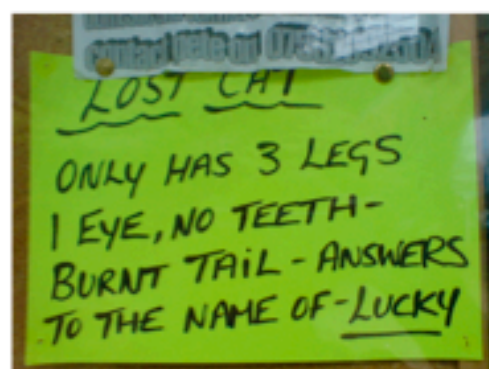 contact Pete on
LOST CAT
ONLY HAS 3 LEGS
1 EYE, NO TEETH-
BURNT TAIL - ANSWERS
TO THE NAME OF - LUCKY